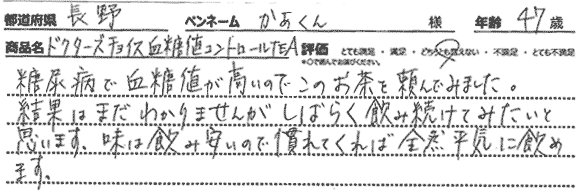 都道府県 長野 ペンネーム かあくん 様 年齢 47 歳
商品名 ドクターズチョイス血糖値コントロールTEA 評価 とても満足 ・ 満足 ・ どちらとも言えない ・ 不満足 ・ とても不満足
※○で囲んでお選びください。
糖尿病で血糖値が高いのでこのお茶を頼んでみました。
結果はまだわかりませんがしばらく飲み続けてみたいと
思います。味は飲み安いので慣れてくれば全然平気に飲め
ます。